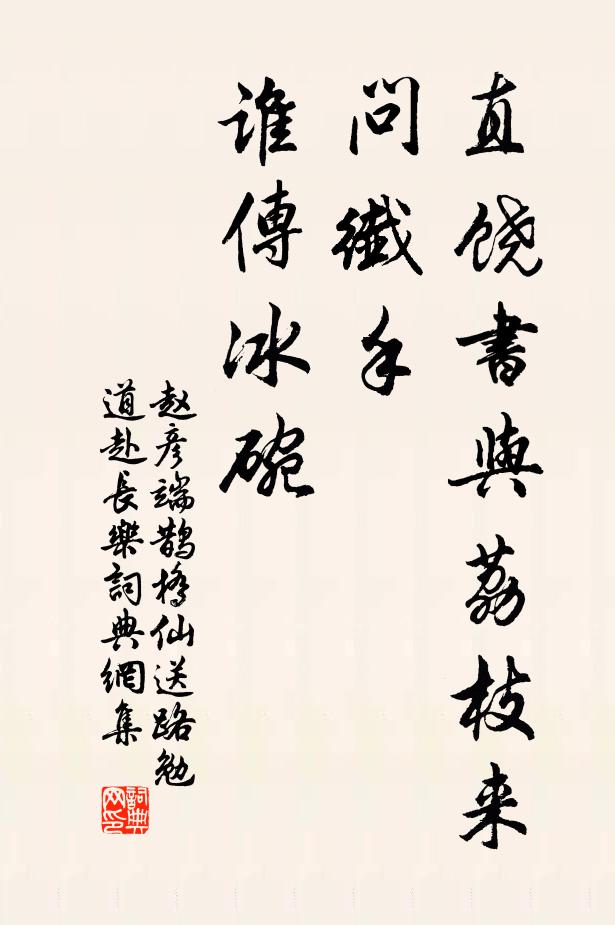 直饶書與荔枝来
問纖手
谁傳冰碗
赵彦端鹊橋仙送路勉
道赴長樂詞典網集
詞典网印